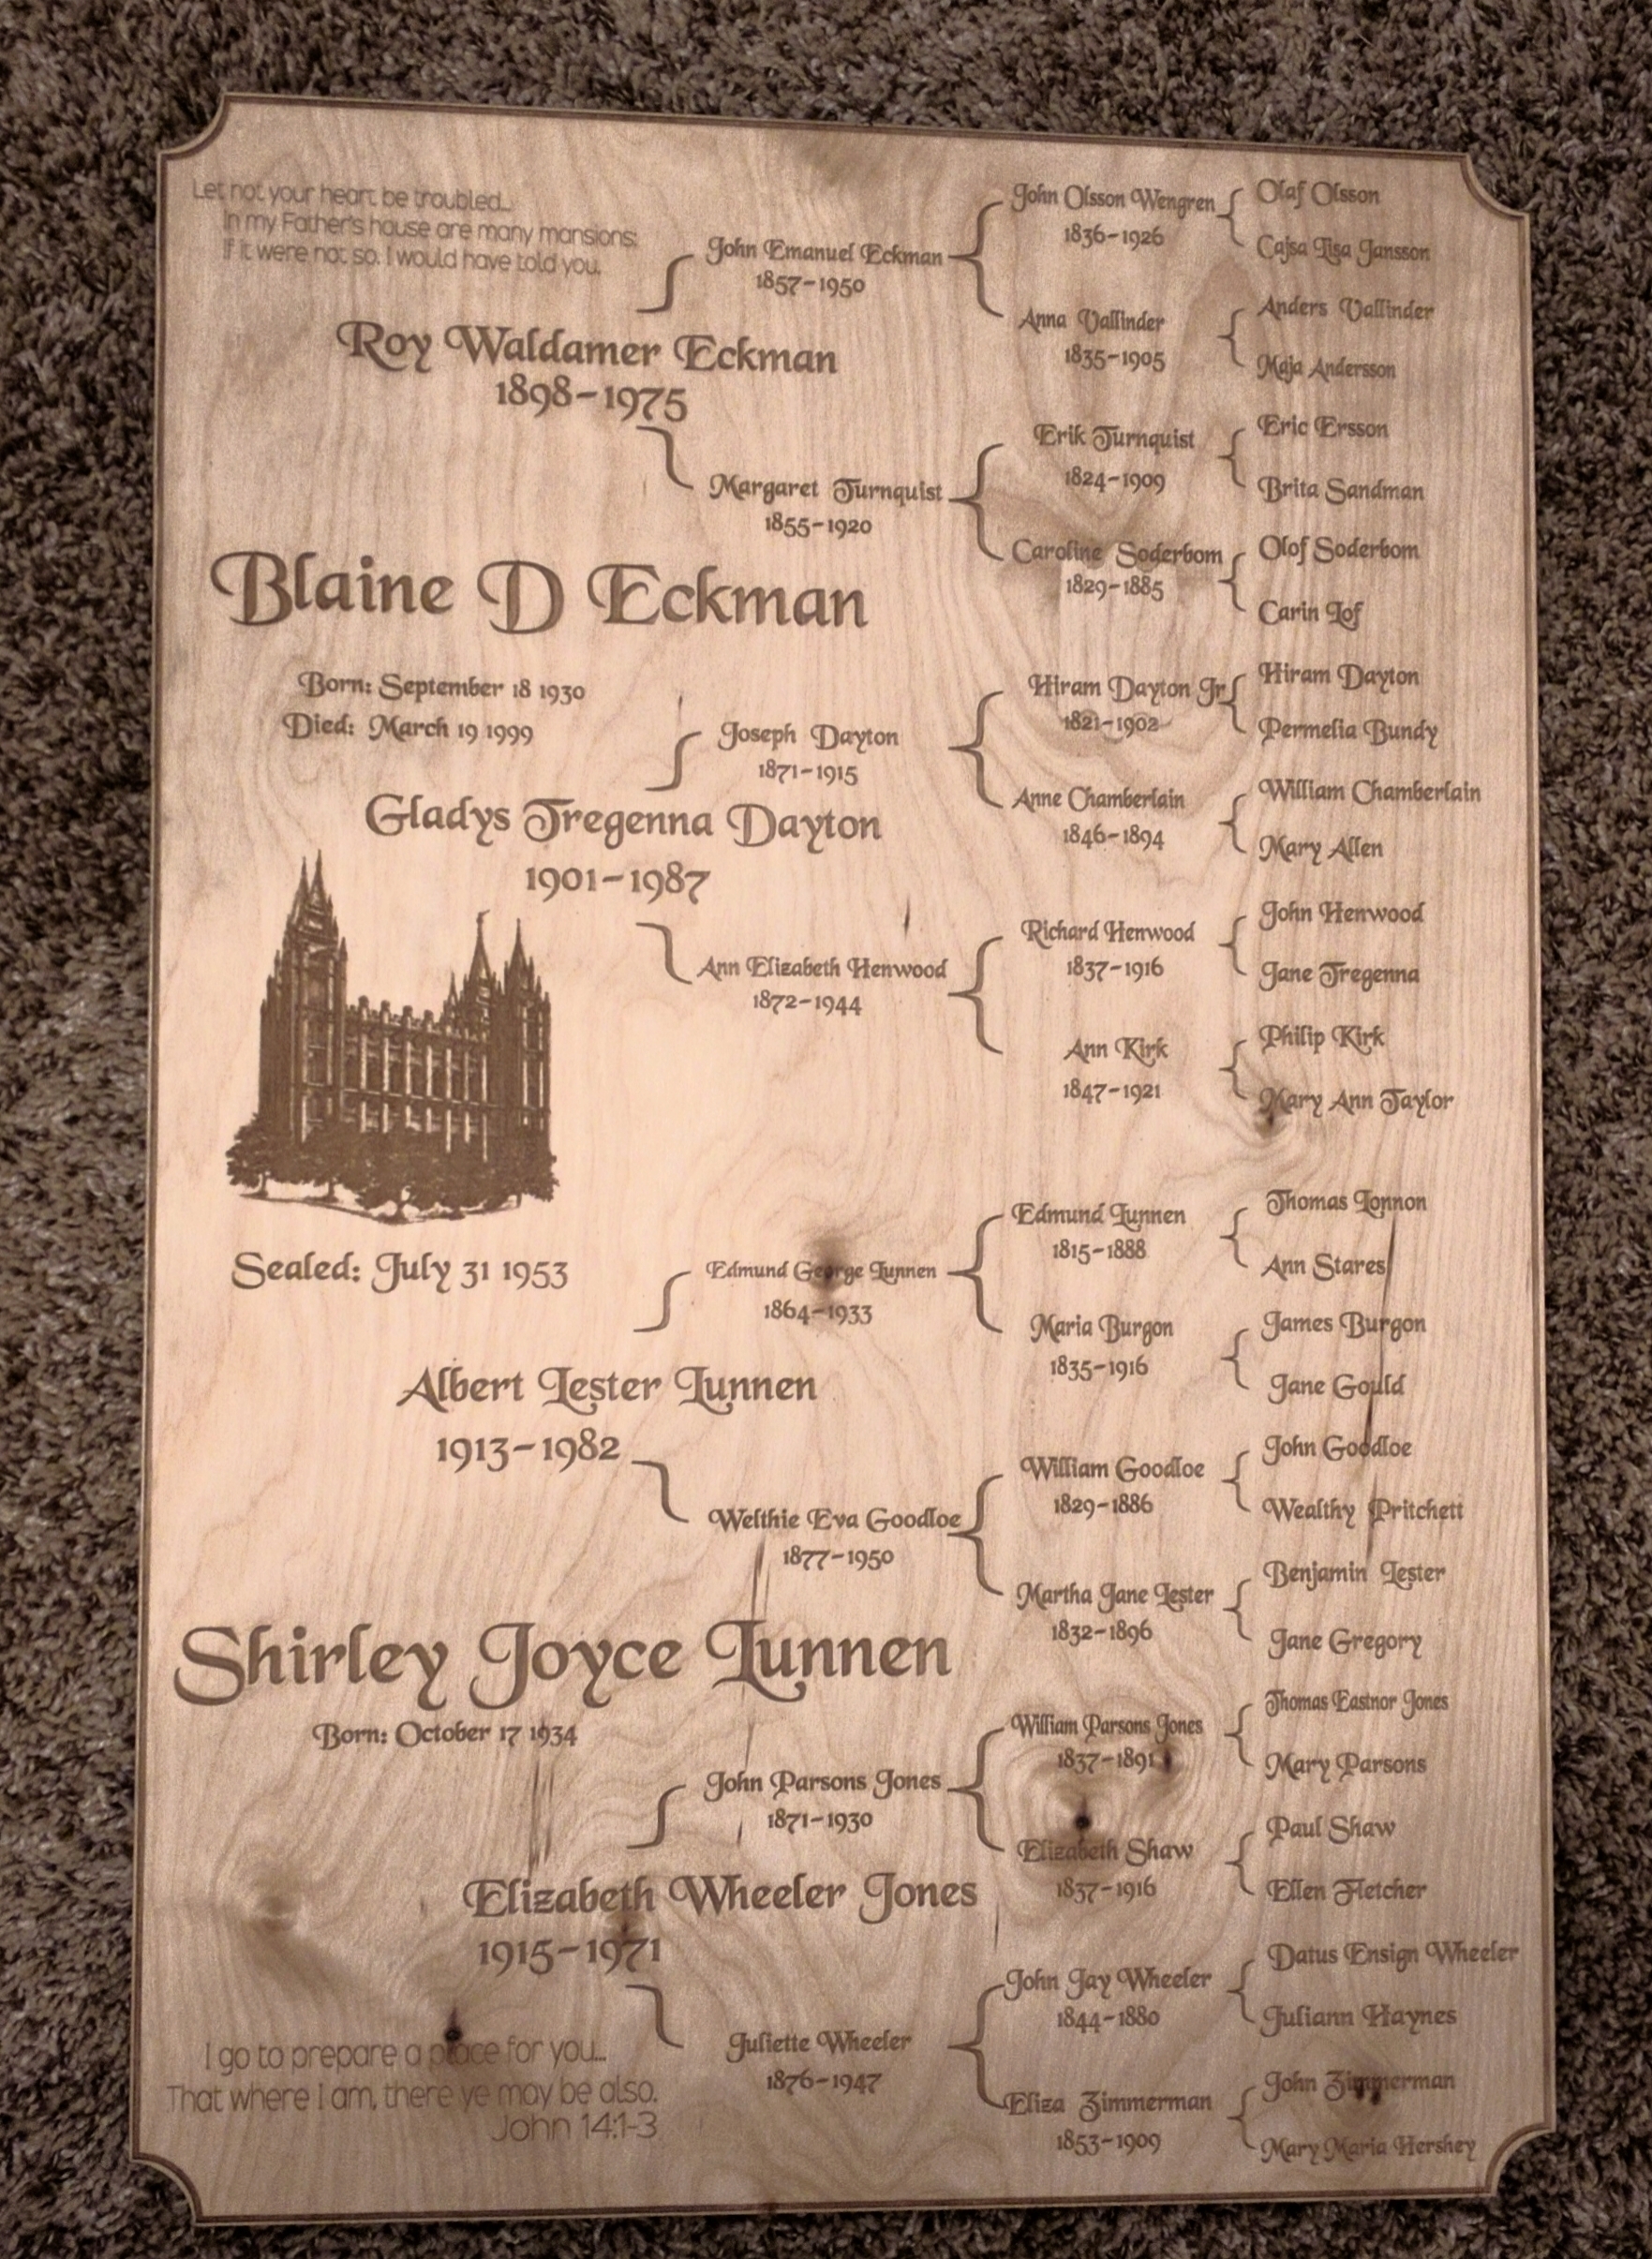 Let not your heart be troubled...
In my Father's house are many mansions:
If it were not so, I would have told you.
Roy Waldamer Eckman
1898-1975
John Emanuel Eckman
1857-1950
John Olsson Wengren
1836-1926
Olaf Olsson
Cajsa Lisa Jansson
Anna Vallinder
1835-1905
Anders Vallinder
Maja Andersson
Margaret Turnquist
1855-1920
Erik Turnquist
1824-1909
Eric Ersson
Brita Sandman
Caroline Soderbom
1829-1885
Olof Soderbom
Carin Lof
Blaine D Eckman
Born: September 18 1930
Died: March 19 1999
Gladys Tregenna Dayton
1901-1987
Joseph Dayton
1871-1915
Hiram Dayton Jr
1821-1902
Hiram Dayton
Permelia Bundy
Anne Chamberlain
1846-1894
William Chamberlain
Mary Allen
Ann Elizabeth Henwood
1872-1944
Richard Henwood
1837-1916
John Henwood
Jane Tregenna
Ann Kirk
1847-1921
Philip Kirk
Mary Ann Taylor
Sealed: July 31 1953
Albert Lester Lunnen
1913-1982
Edmund George Lunnen
1864-1933
Edmund Lunnen
1815-1888
Thomas Lonnon
Ann Stares
Maria Burgon
1835-1916
James Burgon
Jane Gould
Welthie Eva Goodloe
1877-1950
William Goodloe
1829-1886
John Goodloe
Wealthy Pritchett
Martha Jane Lester
1832-1896
Benjamin Lester
Jane Gregory
Shirley Joyce Lunnen
Born: October 17 1934
Elizabeth Wheeler Jones
1915-1971
John Parsons Jones
1871-1930
William Parsons Jones
1837-1891
Thomas Eastnor Jones
Mary Parsons
Elizabeth Shaw
1837-1916
Paul Shaw
Ellen Fletcher
Juliette Wheeler
1876-1947
John Jay Wheeler
1844-1880
Datus Ensign Wheeler
Juliann Haynes
Eliza Zimmerman
1853-1909
John Zimmerman
Mary Maria Hershey
I go to prepare a place for you...
That where I am, there ye may be also.
John 14:1-3